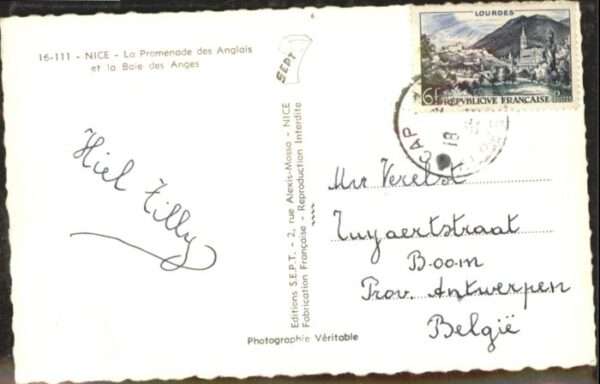 16-111 - NICE - La Promenade des Anglais
et la Baie des Anges
SEPT
LOURDES
6F RÉPUBLIQUE FRANÇAISE
CAP
18
Hiel Tilly
Editions S.E.P.T. - 2, rue Alexis-Mossa - NICE
Fabrication Française - Reproduction Interdite
Mr Verelst
Tuyaertstraat
Boom
Prov. Antwerpen
België
Photographie Véritable